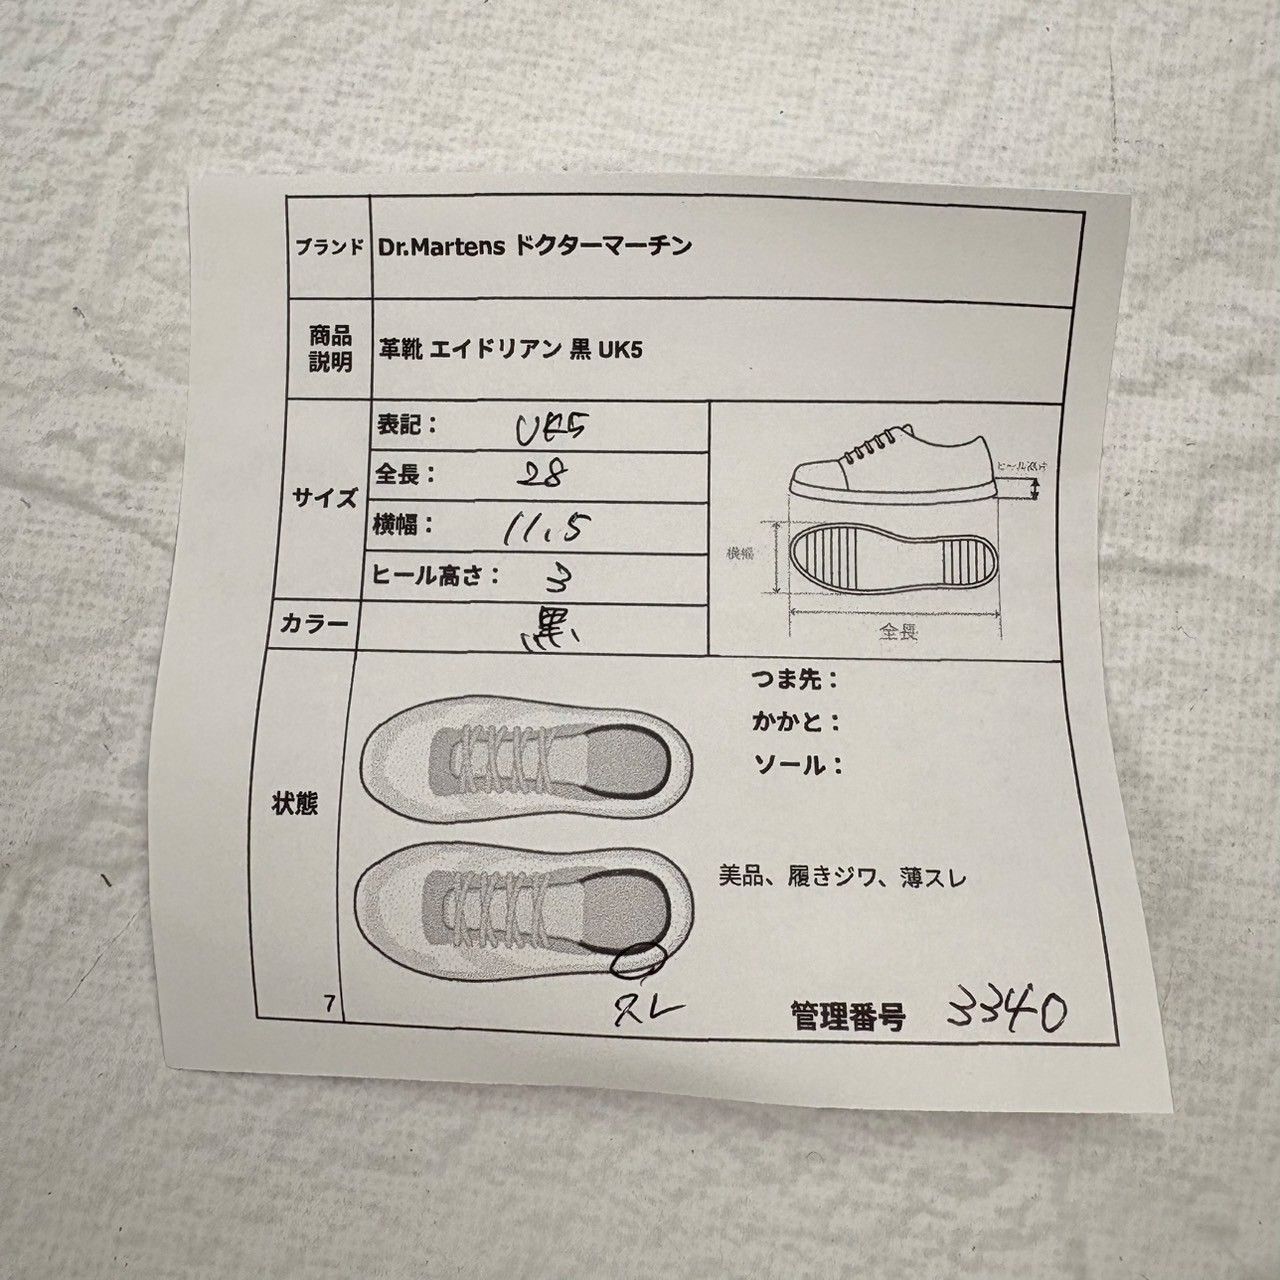 ブランド Dr.Martens ドクターマーチン
商品説明 革靴 エイドリアン 黒 UK5
サイズ
表記： UK5
全長： 28
横幅： 11.5
ヒール高さ： 3
ヒール高さ
横幅
全長
カラー 黒
状態
つま先：
かかと：
ソール：
美品、履きジワ、薄スレ
スレ
7
管理番号 3340